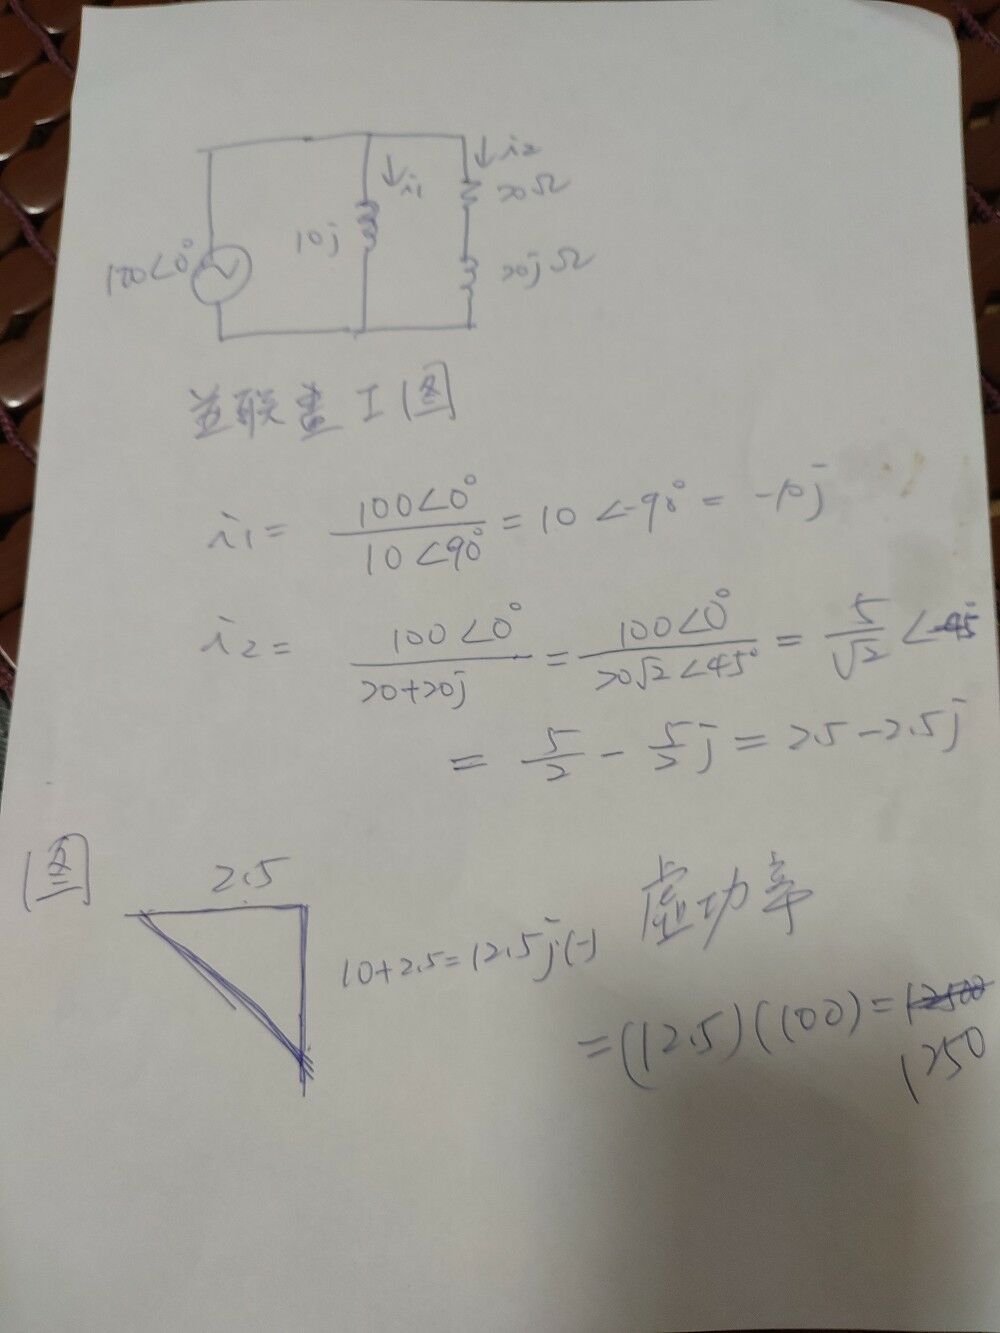 ↓i2
20Ω
↓i1
10j
100∠0°
20jΩ
並联畫I图
i1 = 100∠0° / 10∠90° = 10∠-90° = -10j
i2 = 100∠0° / 20+20j = 100∠0° / 20√2∠45° = 5/√2 ∠-45
= 5/2 - 5/2 j = 2.5-2.5j
图
2.5
10+2.5=12.5j(-)
虚功率
=(12.5)(100)=12500
1250